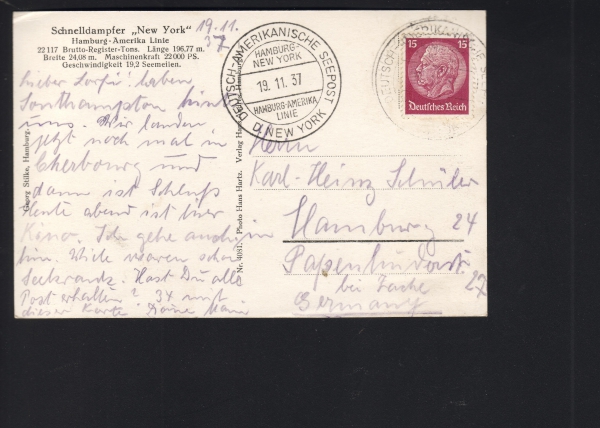 Schnelldampfer „New York"
Hamburg-Amerika Linie
22117 Brutto-Register-Tons. Länge 196,77 m.
Breite 24,08 m. Maschinenkraft 22000 PS.
Geschwindigkeit 19,2 Seemeilen.
19.11.
37
Lieber haben
Southampton hinter
uns. Wir landen
jetzt noch mal in
Cherbourg und
dann ist Schluß
Heute abend ist hier
Kino. Ich gehe auch
hin. Viele waren schon
Seekrank. Hast Du alle
Post erhalten? 34 mit
dieser Karte. Deine
Georg Stilke, Hamburg.
Nr. 4081. Photo Hans Hartz. Verlag
DEUTSCH-AMERIKANISCHE SEEPOST
HAMBURG-
NEW YORK
19.11.37
HAMBURG-AMERIKA
LINIE
D. NEW YORK
15 15
Deutsches Reich
Herrn
Karl-Heinz Schüler
in Hamburg 24
Papenhuderstr. 27
bei Zache
Germany